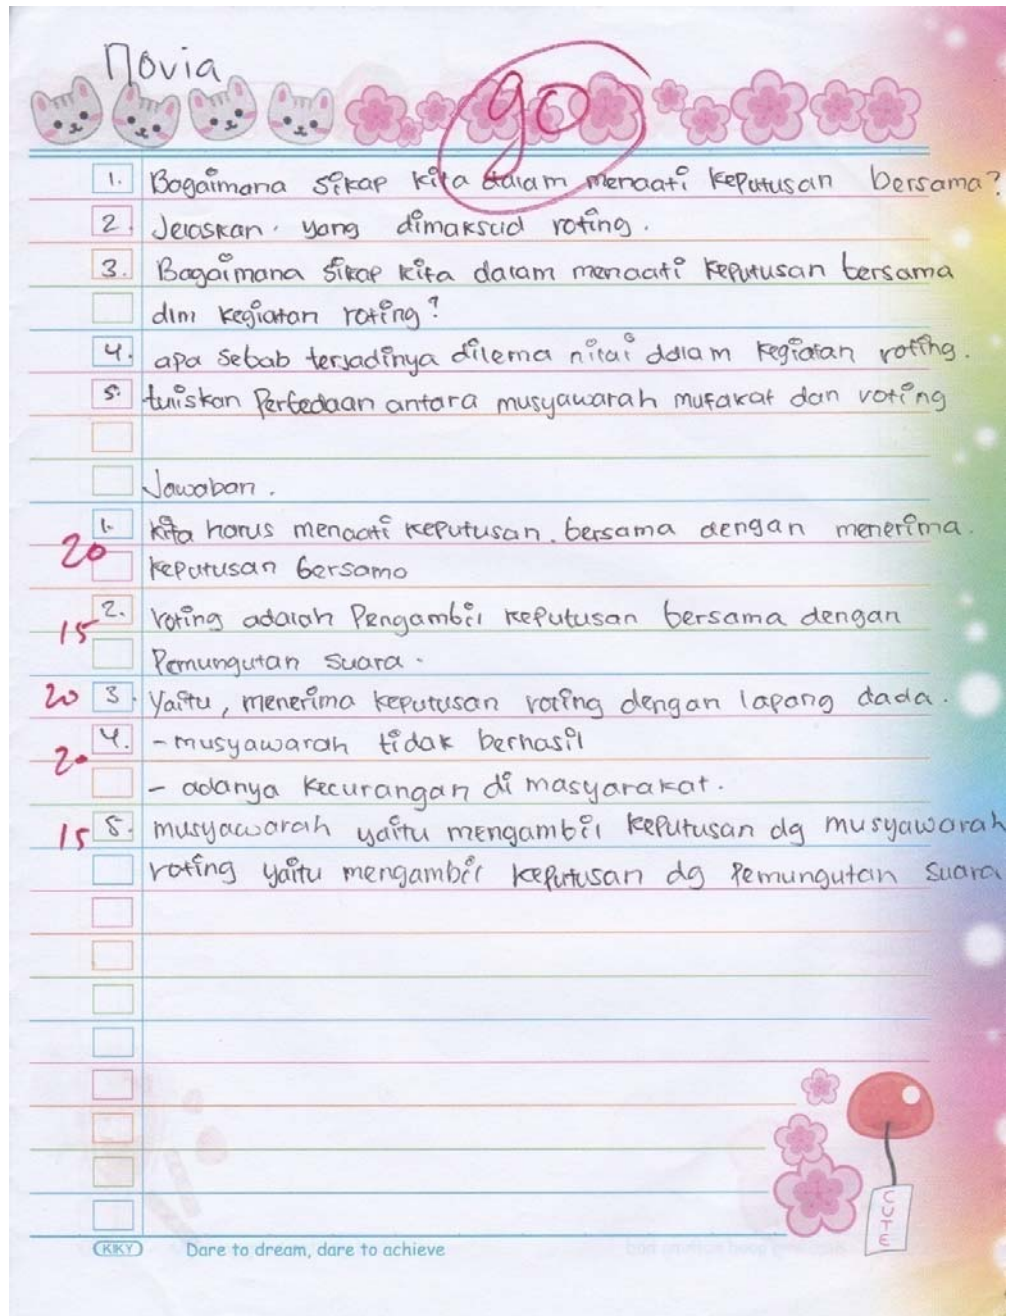 Novia
90
1. Bagaimana sikap kita dalam menaati keputusan bersama?
2. Jelaskan. yang dimaksud voting.
3. Bagaimana sikap kita dalam menaati keputusan bersama
dlm kegiatan voting?
4. apa sebab terjadinya dilema nilai dalam kegiatan voting.
5. tuliskan Perbedaan antara musyawarah mufakat dan voting
Jawaban.
1. kita harus menaati keputusan. bersama dengan menerima.
20
keputusan bersama
15 2. voting adalah Pengambil keputusan bersama dengan
Pemungutan suara.
20 3. Yaitu, menerima keputusan voting dengan lapang dada.
20 4. - musyawarah tidak berhasil
- adanya kecurangan di masyarakat.
15 5. musyawarah yaitu mengambil keputusan dg musyawarah
voting yaitu mengambil keputusan dg Pemungutan suara
CUTE
KIKY Dare to dream, dare to achieve